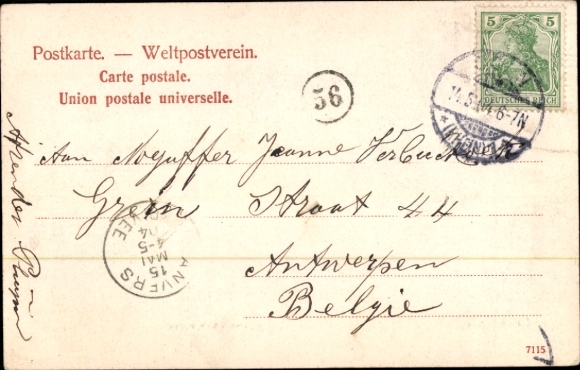 Postkarte. — Weltpostverein.
Carte postale.
Union postale universelle.
5 5
DEUTSCHES REICH
14.5.04. 6-7N
56
Aan Mejuffer Jeanne Verbuck
Straat 44
Antwerpen
Belgie
ANVERS
15 MAI
4-5
04
7115